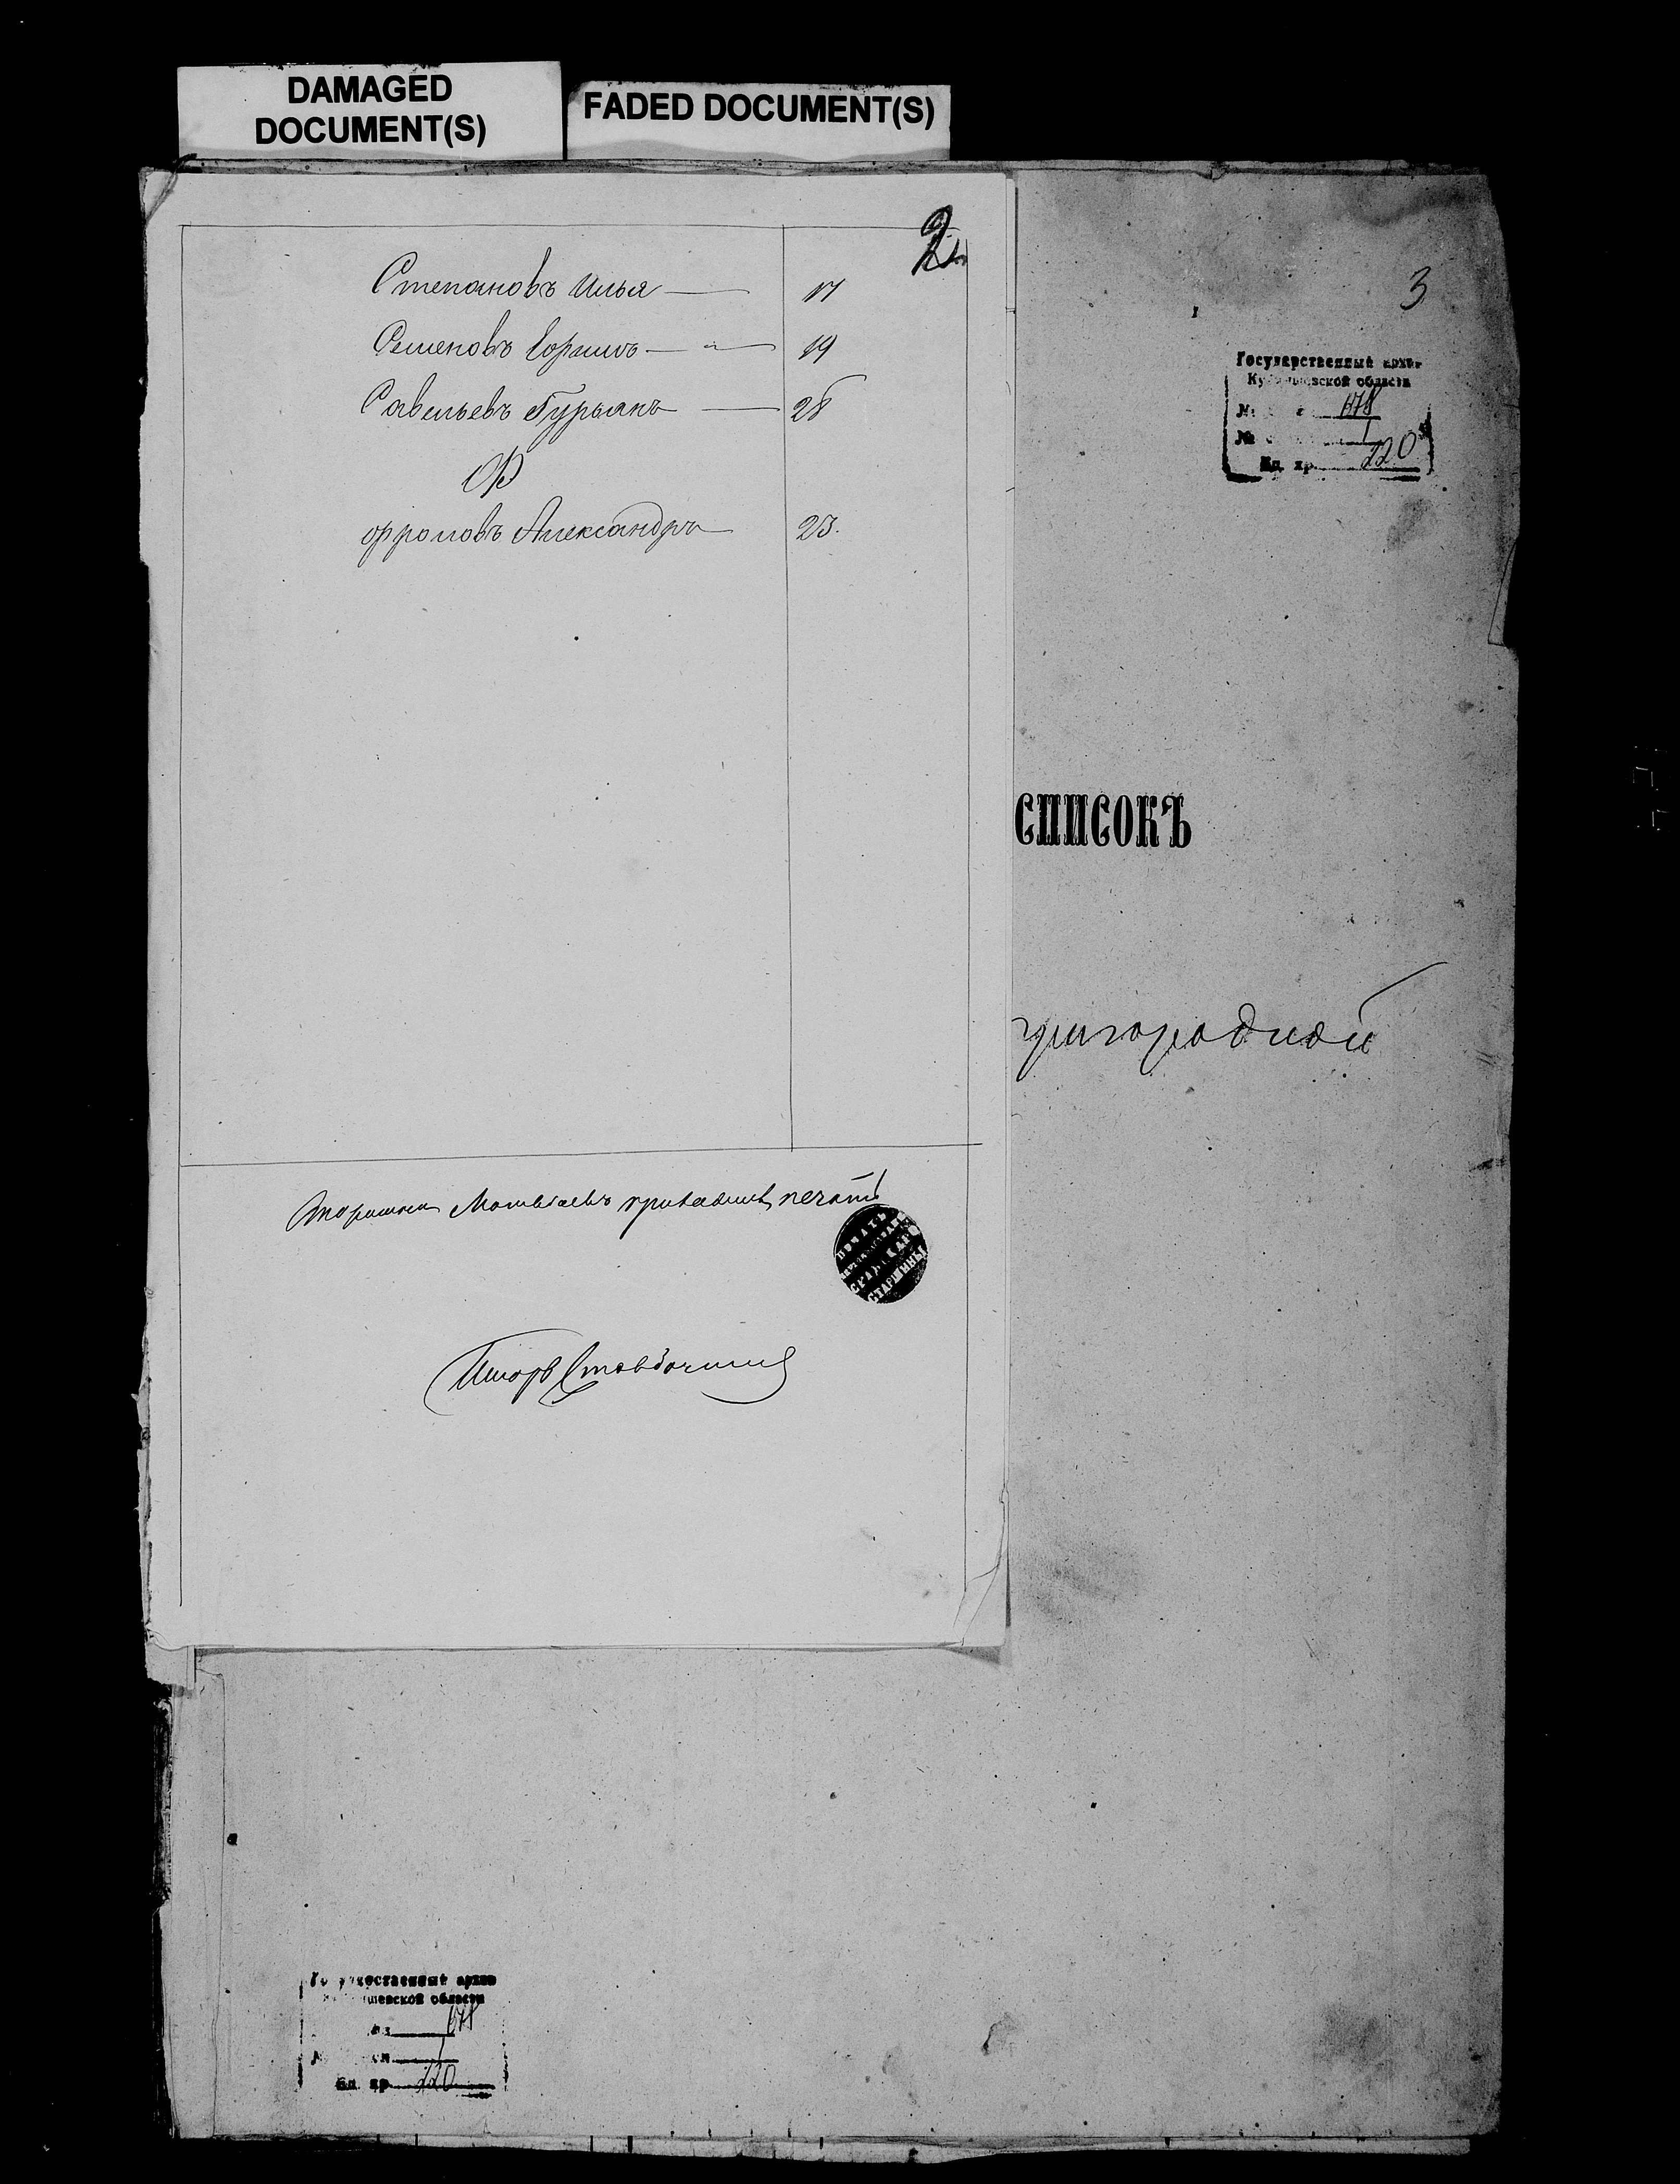 DAMAGED
DOCUMENT(S)
FADED DOCUMENT(S)
2
Степановъ Илья 17
Семеновъ 19
Савельевъ Гурьянъ 28
Ф
Фроловъ Александръ 23.
Старшина Матвѣевъ приложилъ печать
ПЕЧАТЬ
СТАРШИНЫ
3
Государственный архив
Куйбышевской области
№ 678
№ 1
Ед. хр. 220
СПИСОКЪ
ригородной
Государственный архив
Куйбышевской области
678
1
Ед. хр. 220